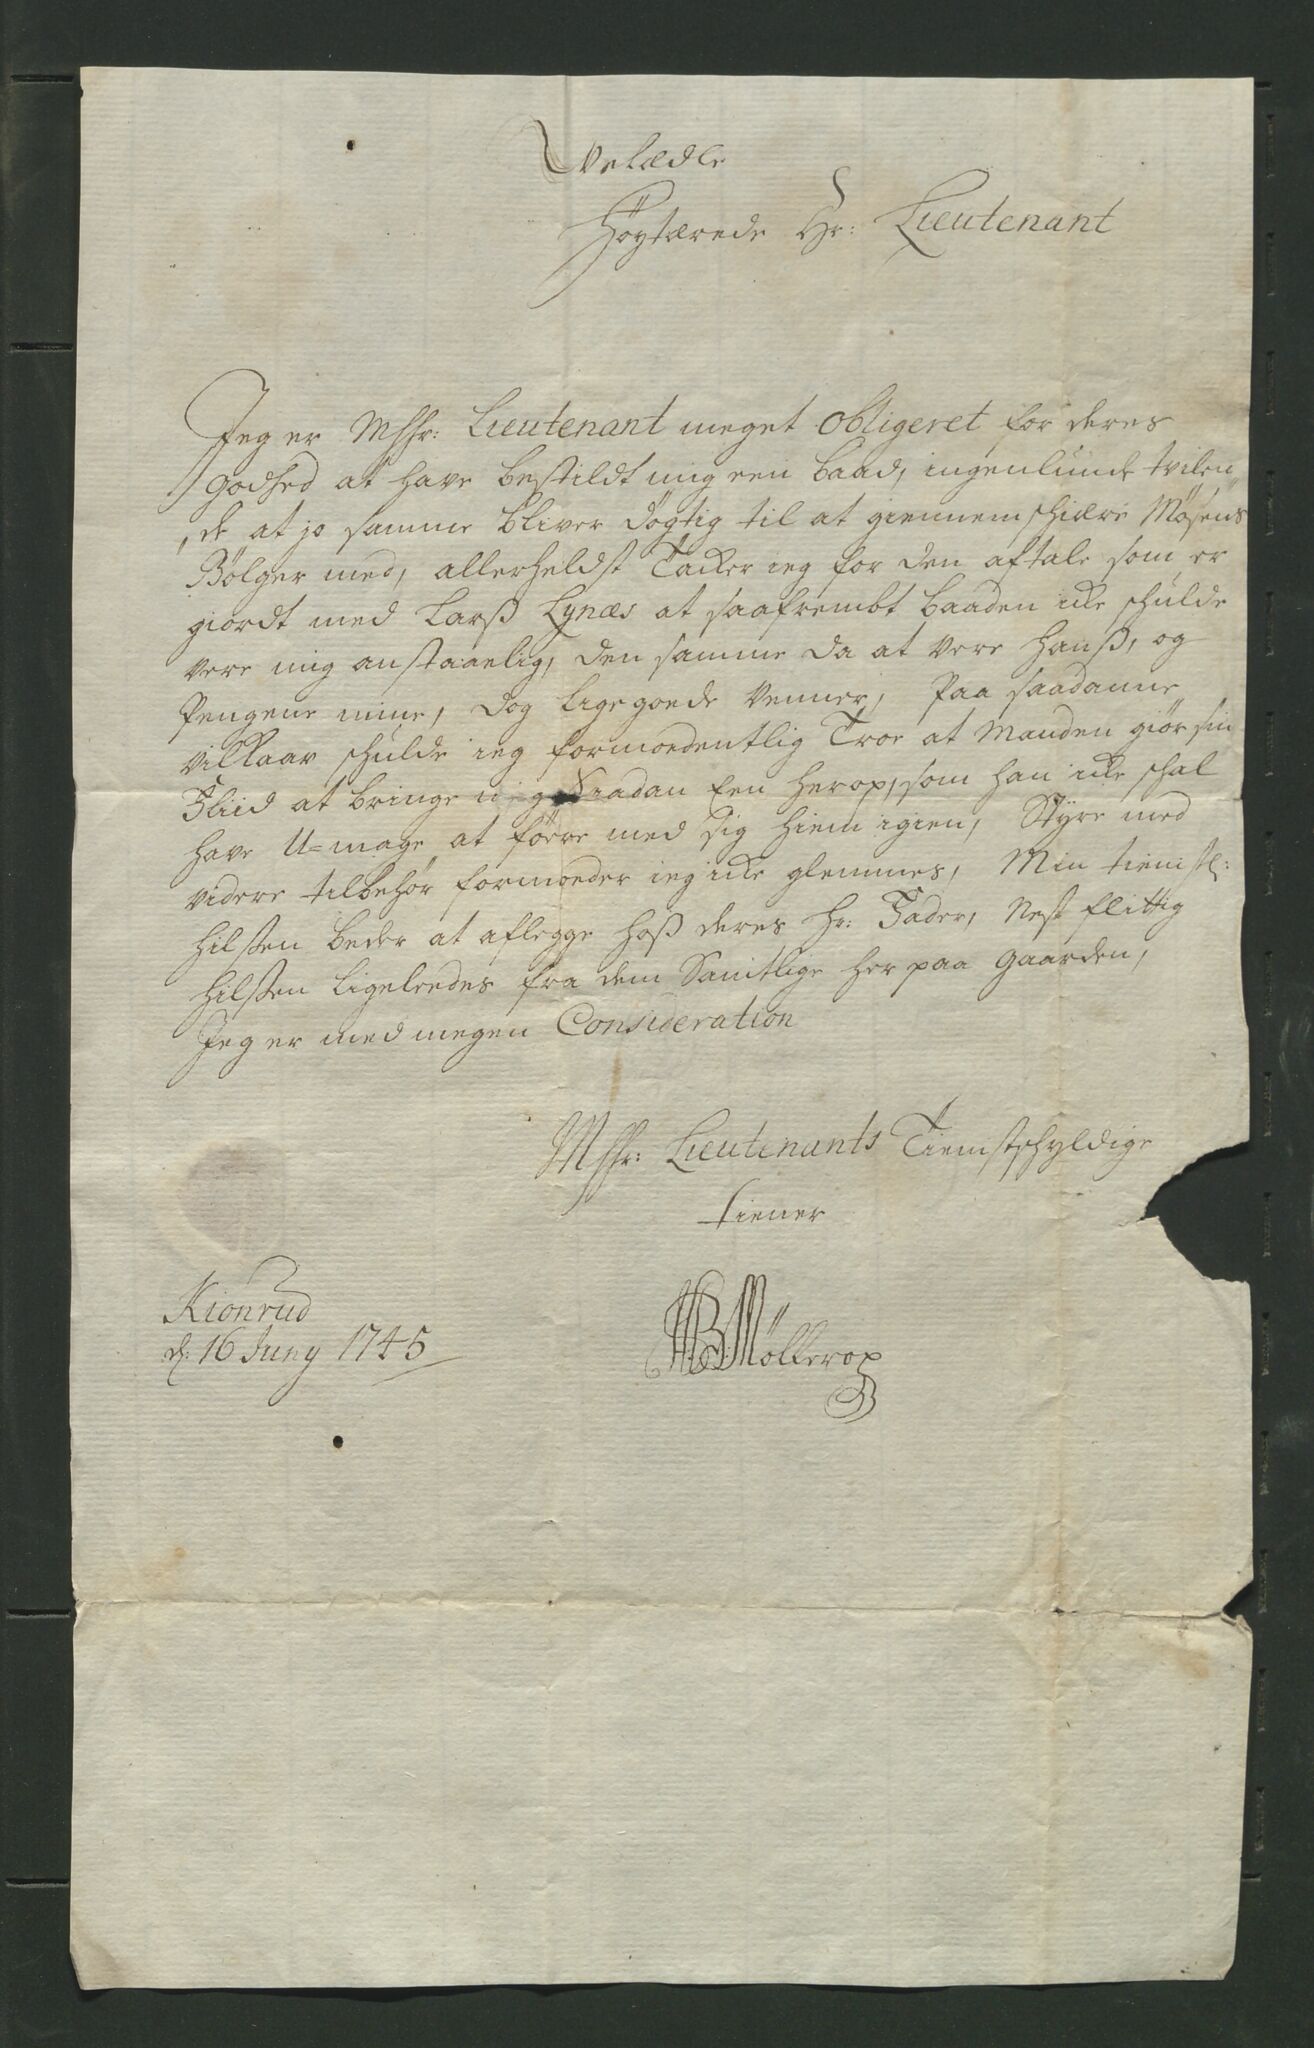 Velædle
Høytærede Hr: Lieutenant
Jeg er Mhhr: Lieutenant meget obligeret for deres
godhed at have bestildt mig een baad, ingenlunde tvilen„
„de at jo samme bliver dögtig til at giennemschiære Møsens
Bölger med, allerheldst Tacker ieg for den aftale som er
giordt med Larß Lynæs at saafrembt baaden icke schulde
vere mig anstaaelig, den samme da at vere hanß, og
Pengene mine, dog lige goede Venner, Paa saadanne
villkaar schulde ieg formoedentlig Troe at Manden giör sin
Fliid at bringe mig Saadan Een herop, som han icke schal
have U=mage at föere med sig hiem igien, Styre med
videre tilbehør formoeder ieg icke glemmes, Min tienstl:
hilsen beder at aflegge hoß deres Hr: Fader, Nest flittig
hilsen ligeleedes fra dem Samtlige her paa gaarden,
Jeg er med megen Consideration
Mhhr: Lieutenants Tienstschyldige
tiener
Kionrud
d: 16 Juny 1745
Möllerop